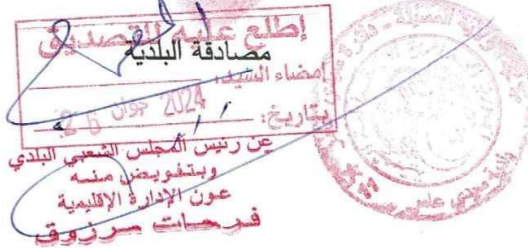 إطلع عليه للتصديق
مصادقة البلدية
إمضاء السيد:
بتاريخ: 26 جوان 2024
عن رئيس المجلس الشعبي البلدي
وبتفويض منه
عون الإدارة الإقليمية
فرحات مرزوق
المسيلة
عامر